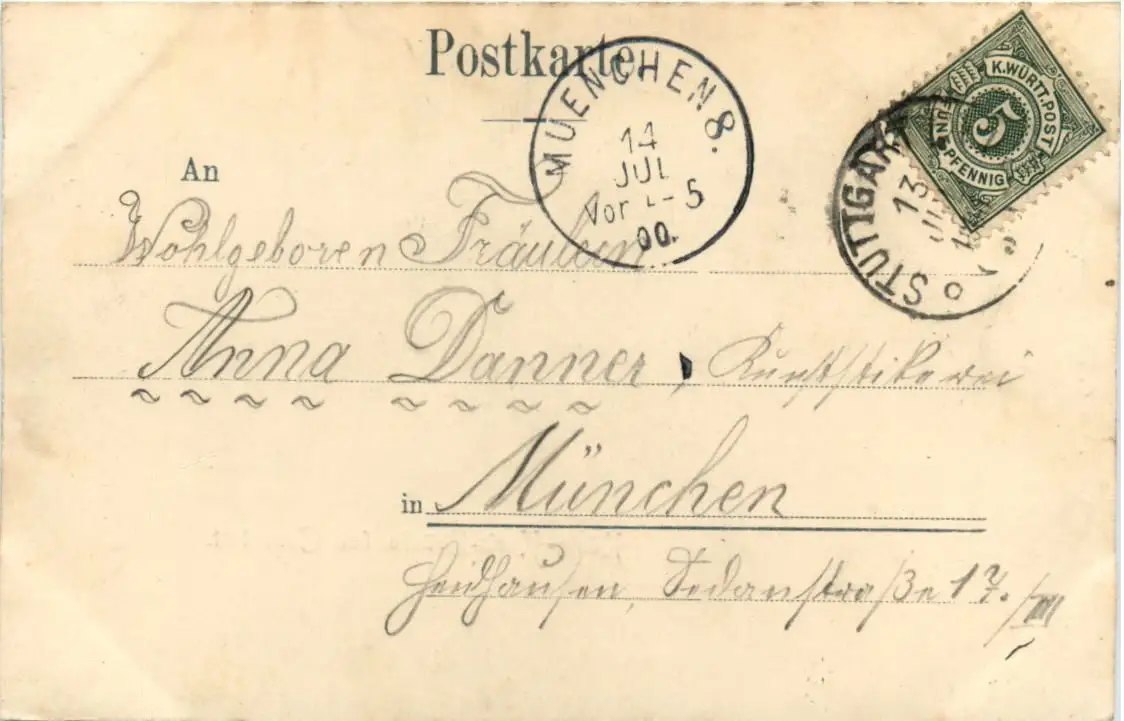 Postkarte.
MUENCHEN 8.
14
JUL
Vor 4-5
00.
K.WÜRTT.POST
5
FÜNF PFENNIG
STUTTGART
13
An
Wohlgeboren Fräulein
Anna Danner, Kunststikerei
in München
Heidhausen, Sedanstraße 17./III